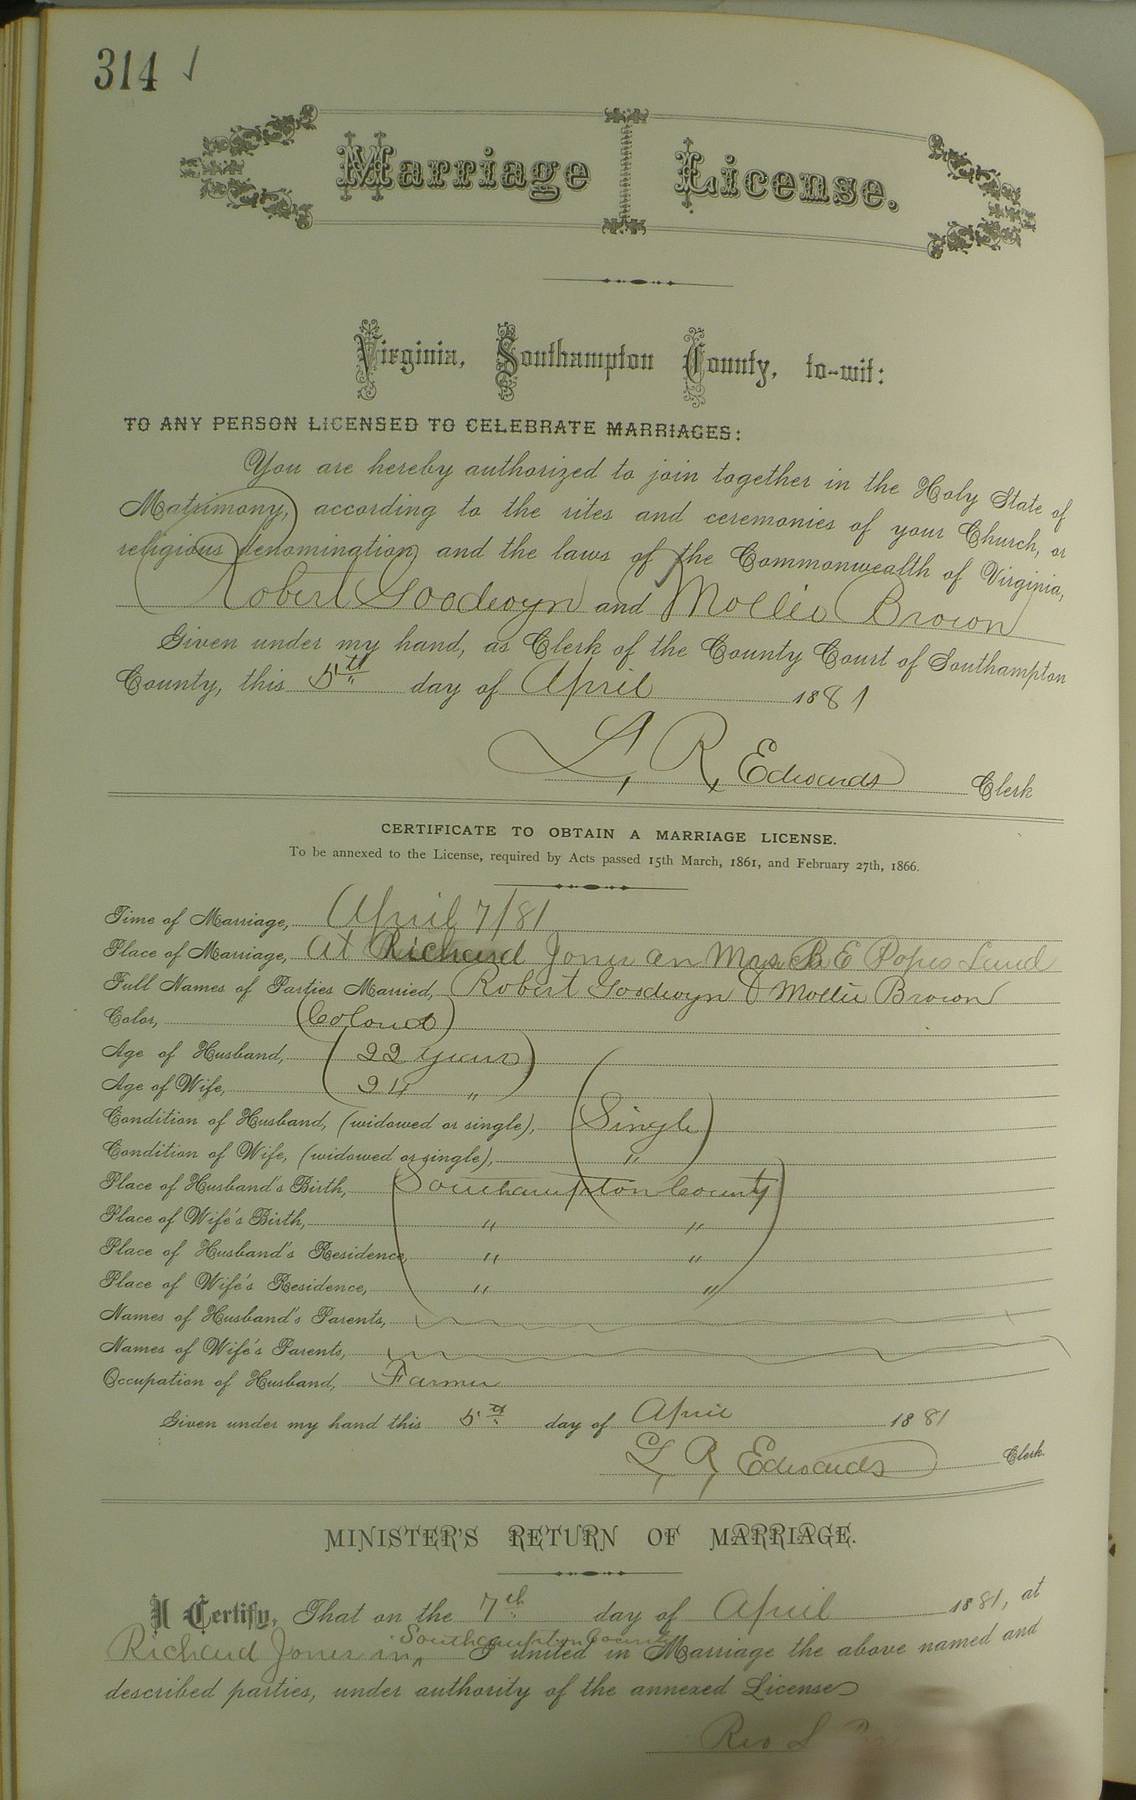 314 ✓
Marriage License.
Virginia, Southampton County, to-wit:
TO ANY PERSON LICENSED TO CELEBRATE MARRIAGES:
You are hereby authorized to join together in the Holy State of
Matrimony, according to the rites and ceremonies of your Church, or
religious denomination, and the laws of the Commonwealth of Virginia,
Robert Goodwyn and Mollie Brown
Given under my hand, as Clerk of the County Court of Southampton
County, this 5th day of April 1881
L. R. Edwards Clerk
CERTIFICATE TO OBTAIN A MARRIAGE LICENSE.
To be annexed to the License, required by Acts passed 15th March, 1861, and February 27th, 1866.
Time of Marriage, April 7/81
Place of Marriage, at Richard Jones on Mrs B E Popes Land
Full Names of Parties Married, Robert Goodwyn & Mollie Brown
Color, Colored
Age of Husband, 22 years
Age of Wife, 24 "
Condition of Husband, (widowed or single), Single
Condition of Wife, (widowed or single), "
Place of Husband's Birth, Southampton County
Place of Wife's Birth, " "
Place of Husband's Residence, " "
Place of Wife's Residence, " "
Names of Husband's Parents,
Names of Wife's Parents,
Occupation of Husband, Farmer
Given under my hand this 5th day of April 1881
L. R. Edwards Clerk.
MINISTER'S RETURN OF MARRIAGE.
I Certify, That on the 7th day of April 1881, at
Richard Jones in Southampton County I united in Marriage the above named and
described parties, under authority of the annexed License
Rev L